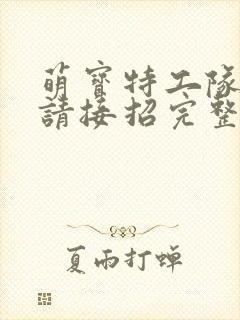 萌寶特工隊
請接招完整
夏雨打蝉